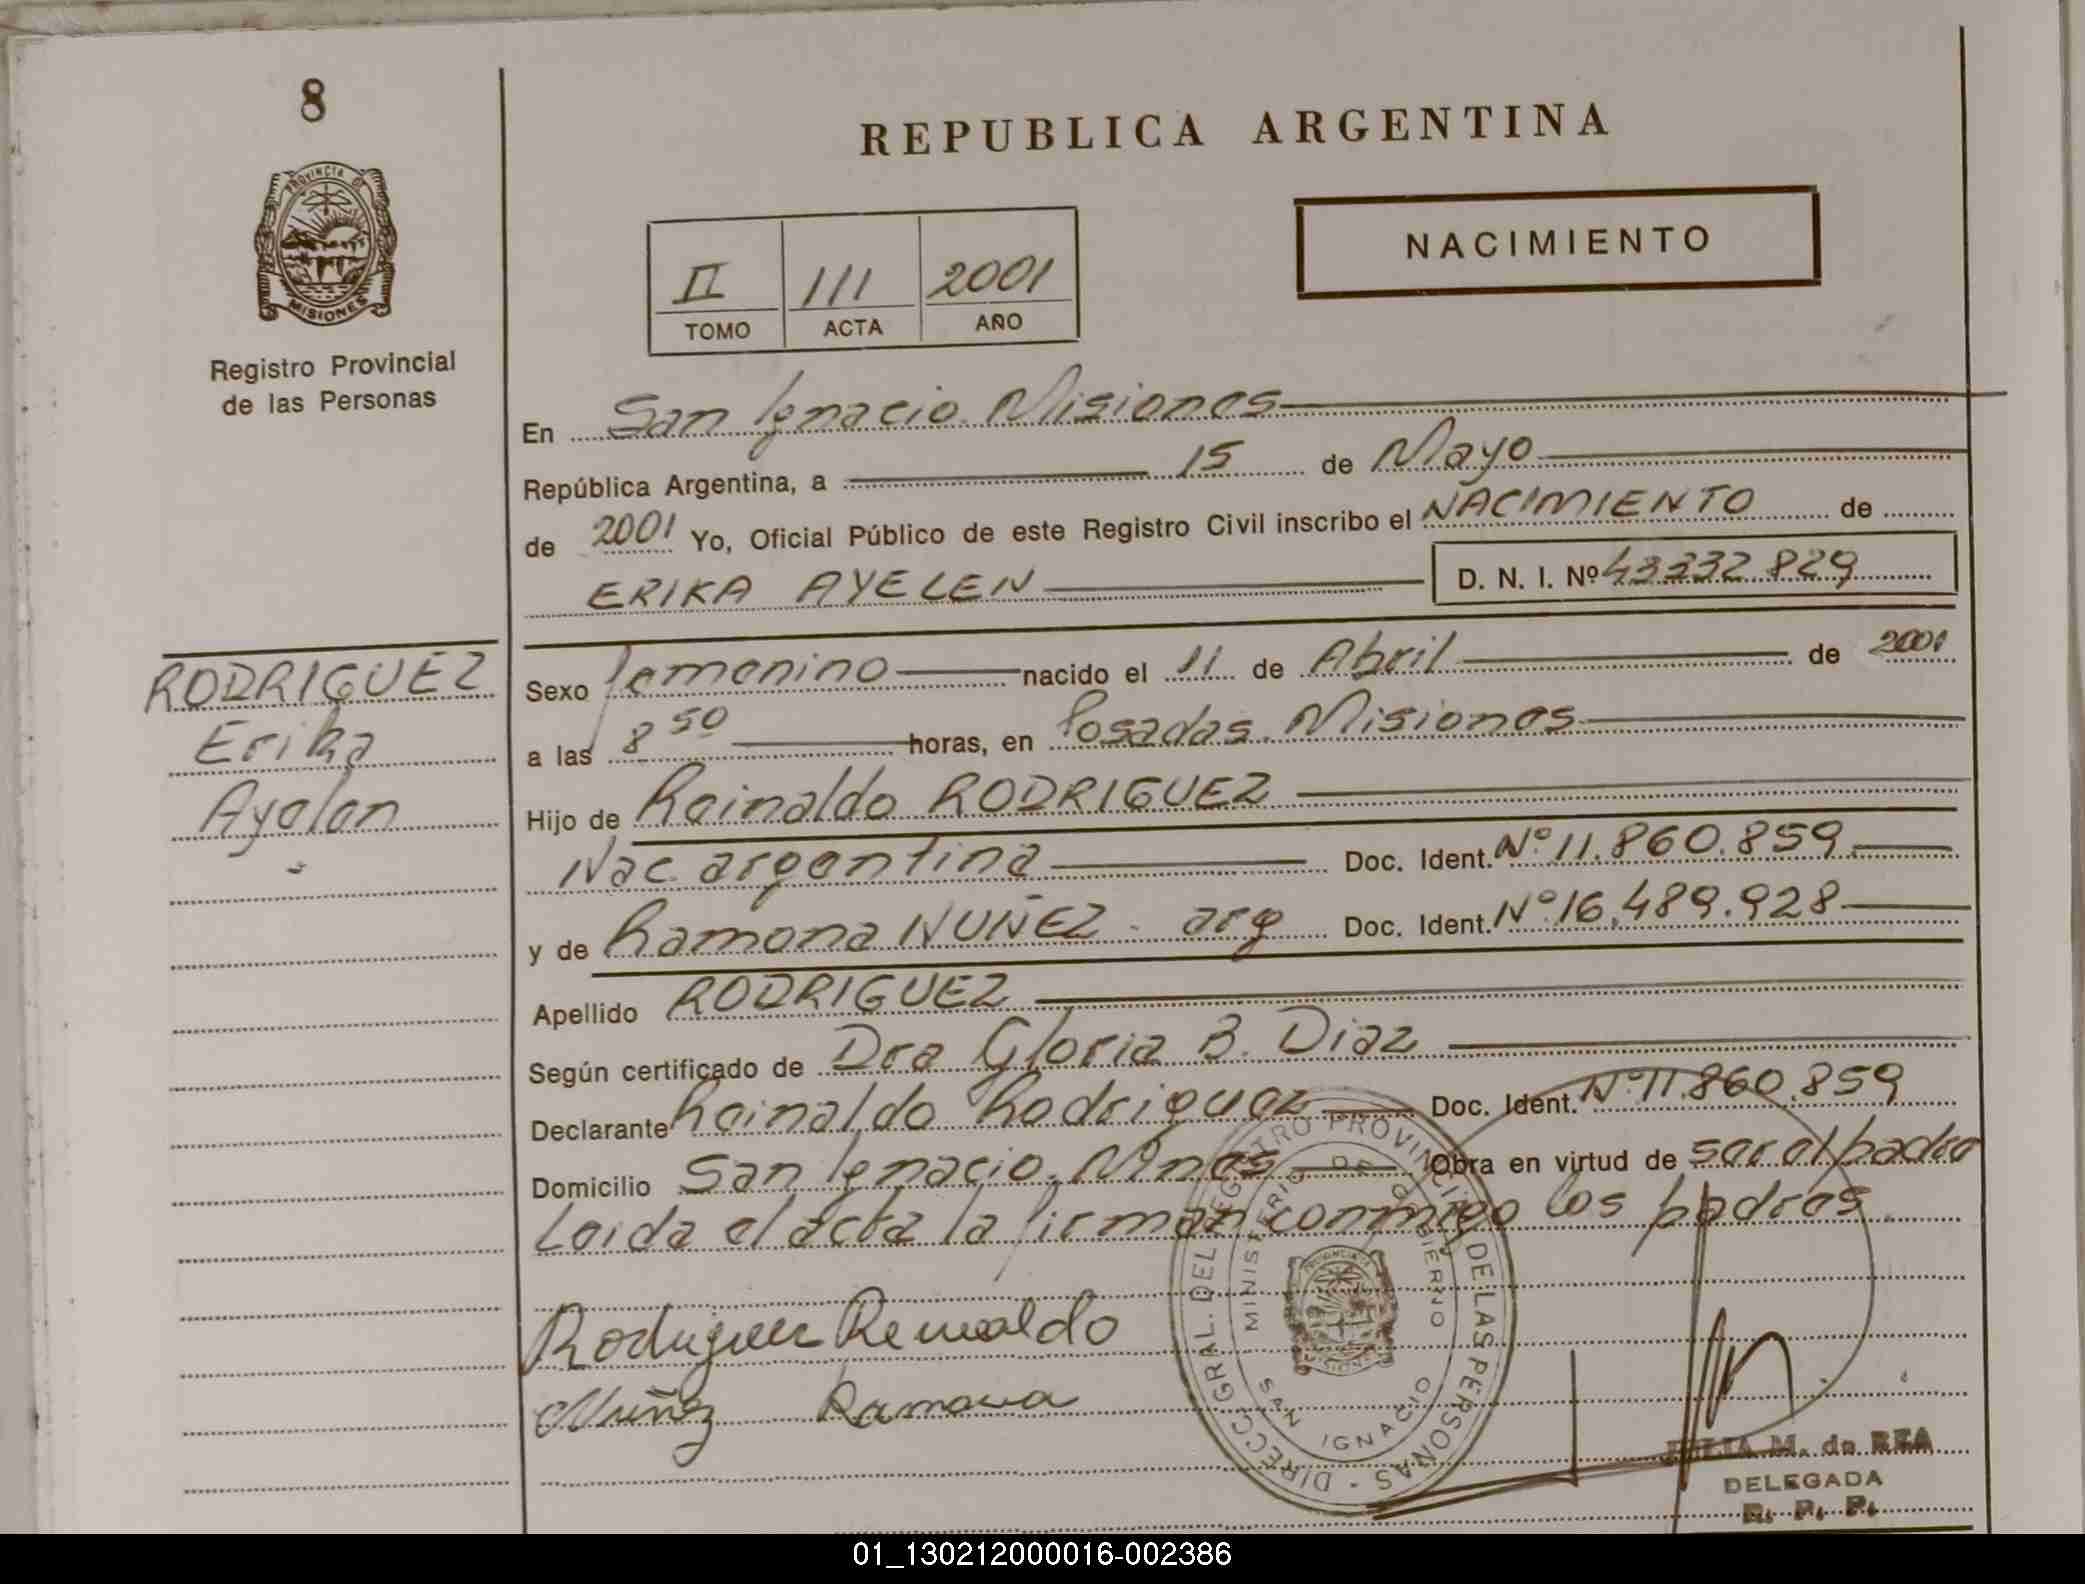 8
PROVINCIA DE
MISIONES
Registro Provincial
de las Personas
RODRIGUEZ
Erika
Ayelen
REPUBLICA ARGENTINA
II 111 2001
TOMO ACTA AÑO
NACIMIENTO
En San Ignacio Misiones
República Argentina, a 15 de Mayo
de 2001 Yo, Oficial Público de este Registro Civil inscribo el NACIMIENTO de
ERIKA AYELEN D. N. I. Nº 43332829
Sexo femenino nacido el 11 de Abril de 2001
a las 8 50 horas, en Posadas. Misiones
Hijo de Reinaldo RODRIGUEZ
Nac. argentina Doc. Ident. Nº 11.860.859
y de Ramona NUÑEZ - arg Doc. Ident. Nº 16.489.928
Apellido RODRIGUEZ
Según certificado de Dra Gloria B. Diaz
Declarante Reinaldo Rodriguez Doc. Ident. Nº 11.860.859
Domicilio San Ignacio. Mnes Obra en virtud de ser el padre
Leida el acta la firman conmigo los padres.
Rodriguez Reinaldo
Nuñez Ramona
DIRECC. GRAL. DEL REGISTRO PROVINCIAL DE LAS PERSONAS -
MINISTERIO DE GOBIERNO
PROVINCIA DE
MISIONES
SAN IGNACIO
M. de REA
DELEGADA
R. P. P.
01_130212000016-002386